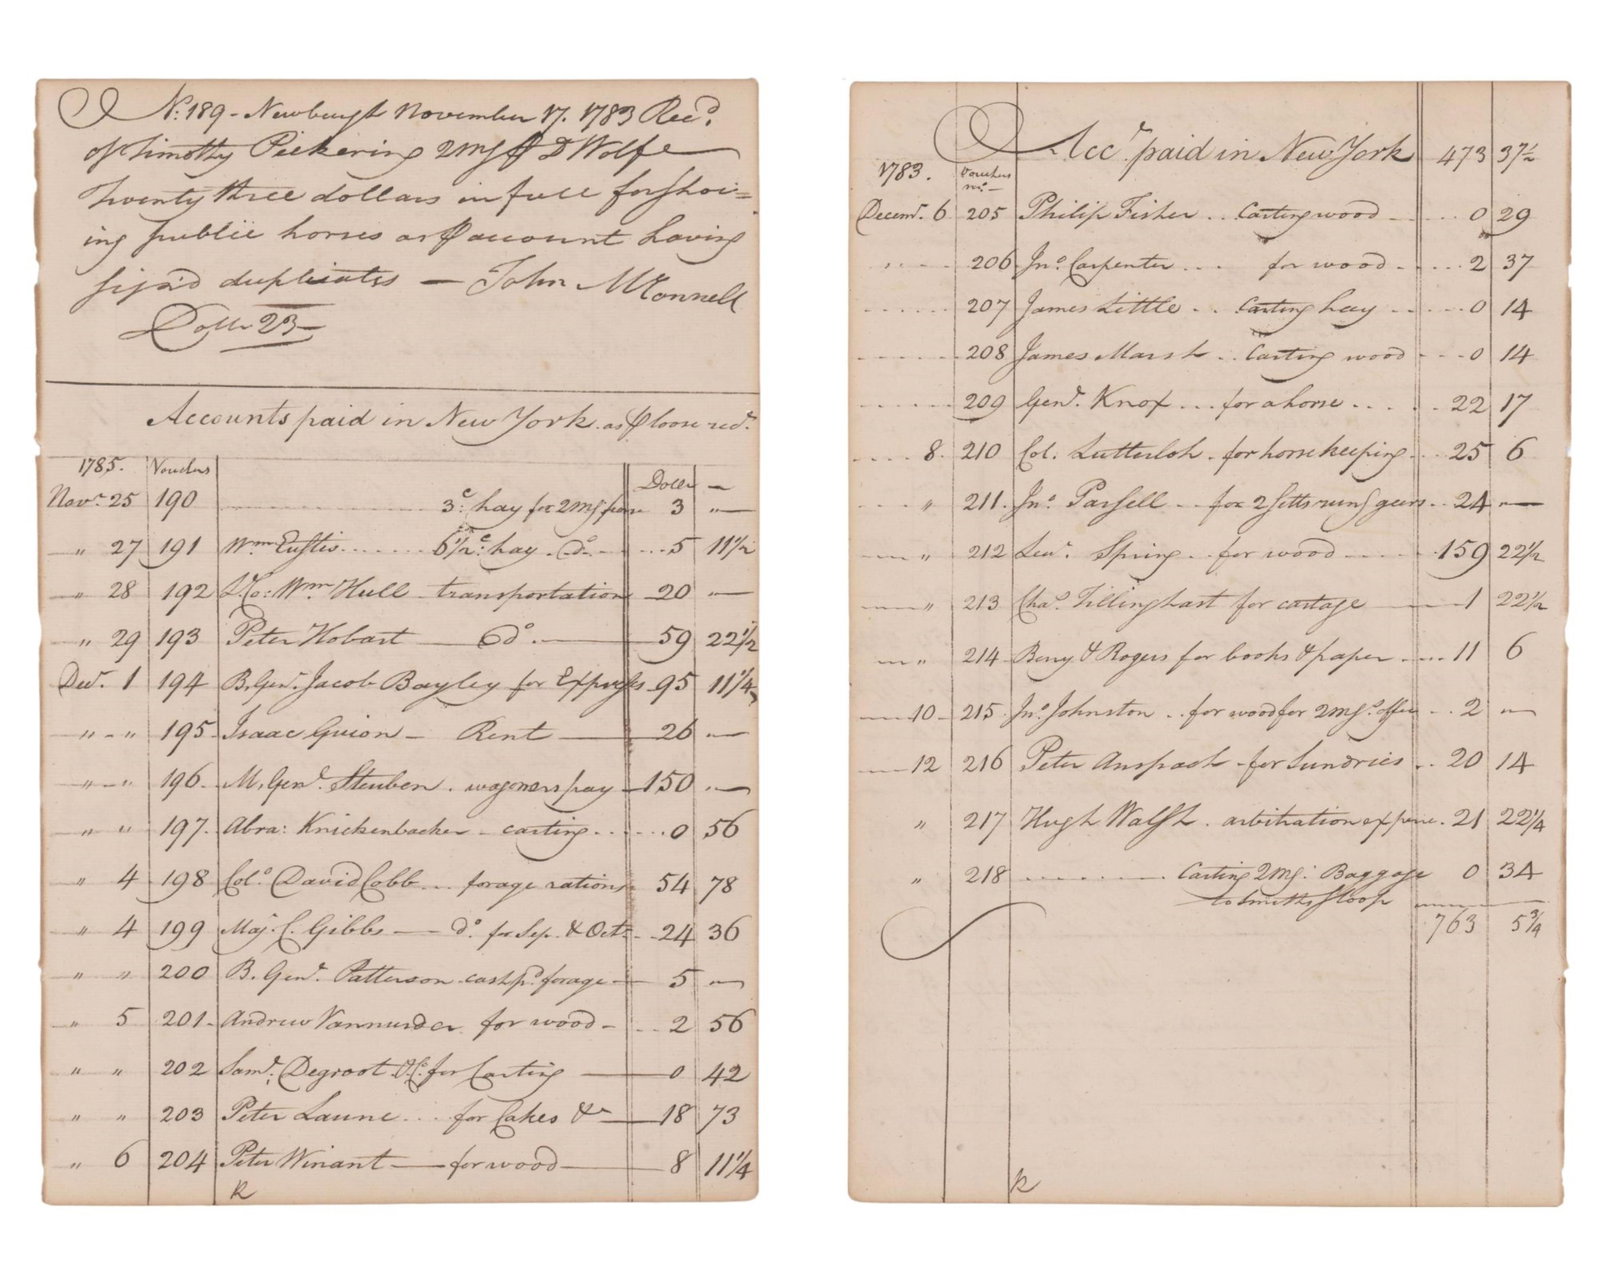 No. 189 - Newburgh November 17. 1783 Recd.
of Timothy Pickering 2MG ⅌ D Wolfe
Twenty three dollars in full for shoe=
ing public horses as ⅌ account having
sign'd duplicates — John McConnell
Dolls. 23 —
Accounts paid in New York as ⅌ loose recd.
1785. Vouchers Dolls —
Novr. 25 190 3c. hay for 2MG 3 " —
" 27 191 Wm Eustis 6 1/2c. hay Do. 5 11 1/2
" 28 192 Wm. Hull transportation 20 —
" 29 193 Peter Hobart — Do. — 59 22 1/2
Decr. 1 194 B. Genl. Jacob Bayley for Expenses 95 11 1/4
" - " 195 Isaac Guion — Rent — 26 —
" - " 196 M. Genl. Steuben . wagoners pay 150 —
" " 197. Abra: Knickenbacker - carting 0 56
" 4 198 Colo. David Cobb forage rations 54 78
" 4 199 Maj. C. Gibbs — do. for Sep. & Octr. 24 36
" " 200 B. Genl. Patterson cash pd. forage 5 —
" 5 201 Andrew Vannurder for wood - 2 56
" " 202 Saml. Degroot &Co. for Carting — 0 42
" " 203 Peter Laune for Cakes &c — 18 73
" 6 204 Peter Winant — for wood — 8 11 1/4
R
Accts. paid in New York 473 37 1/2
1783. Vouchers No. —
Decemr. 6 205 Philip Fisher .. Carting wood 0 29
206 Jno. Carpenter for wood 2 37
207 James Little .. Carting hay 0 14
208 James Marsh .. Carting wood 0 14
209 Genl. Knox for a horse 22 17
8. 210 Col. Lutterloh . for horse keeping 25 6
" 211. Jno. Parsell for 2 setts rung gears 24 —
" 212 Lewr. Spring for wood 159 22 1/2
" 213 Chas. Tillinghast for cartage 1 22 1/2
" 214 Berry & Rogers for books & paper 11 6
10 - 215 Jno. Johnston .. for wood for 2MGs. office 2 —
12 216 Peter Anspach - for Sundries 20 14
" 217 Hugh Walsh . arbitration expence 21 22 1/4
" 218 Carting 2MG: Baggage 0 34
to Smiths Sloop
763 5 3/4
R